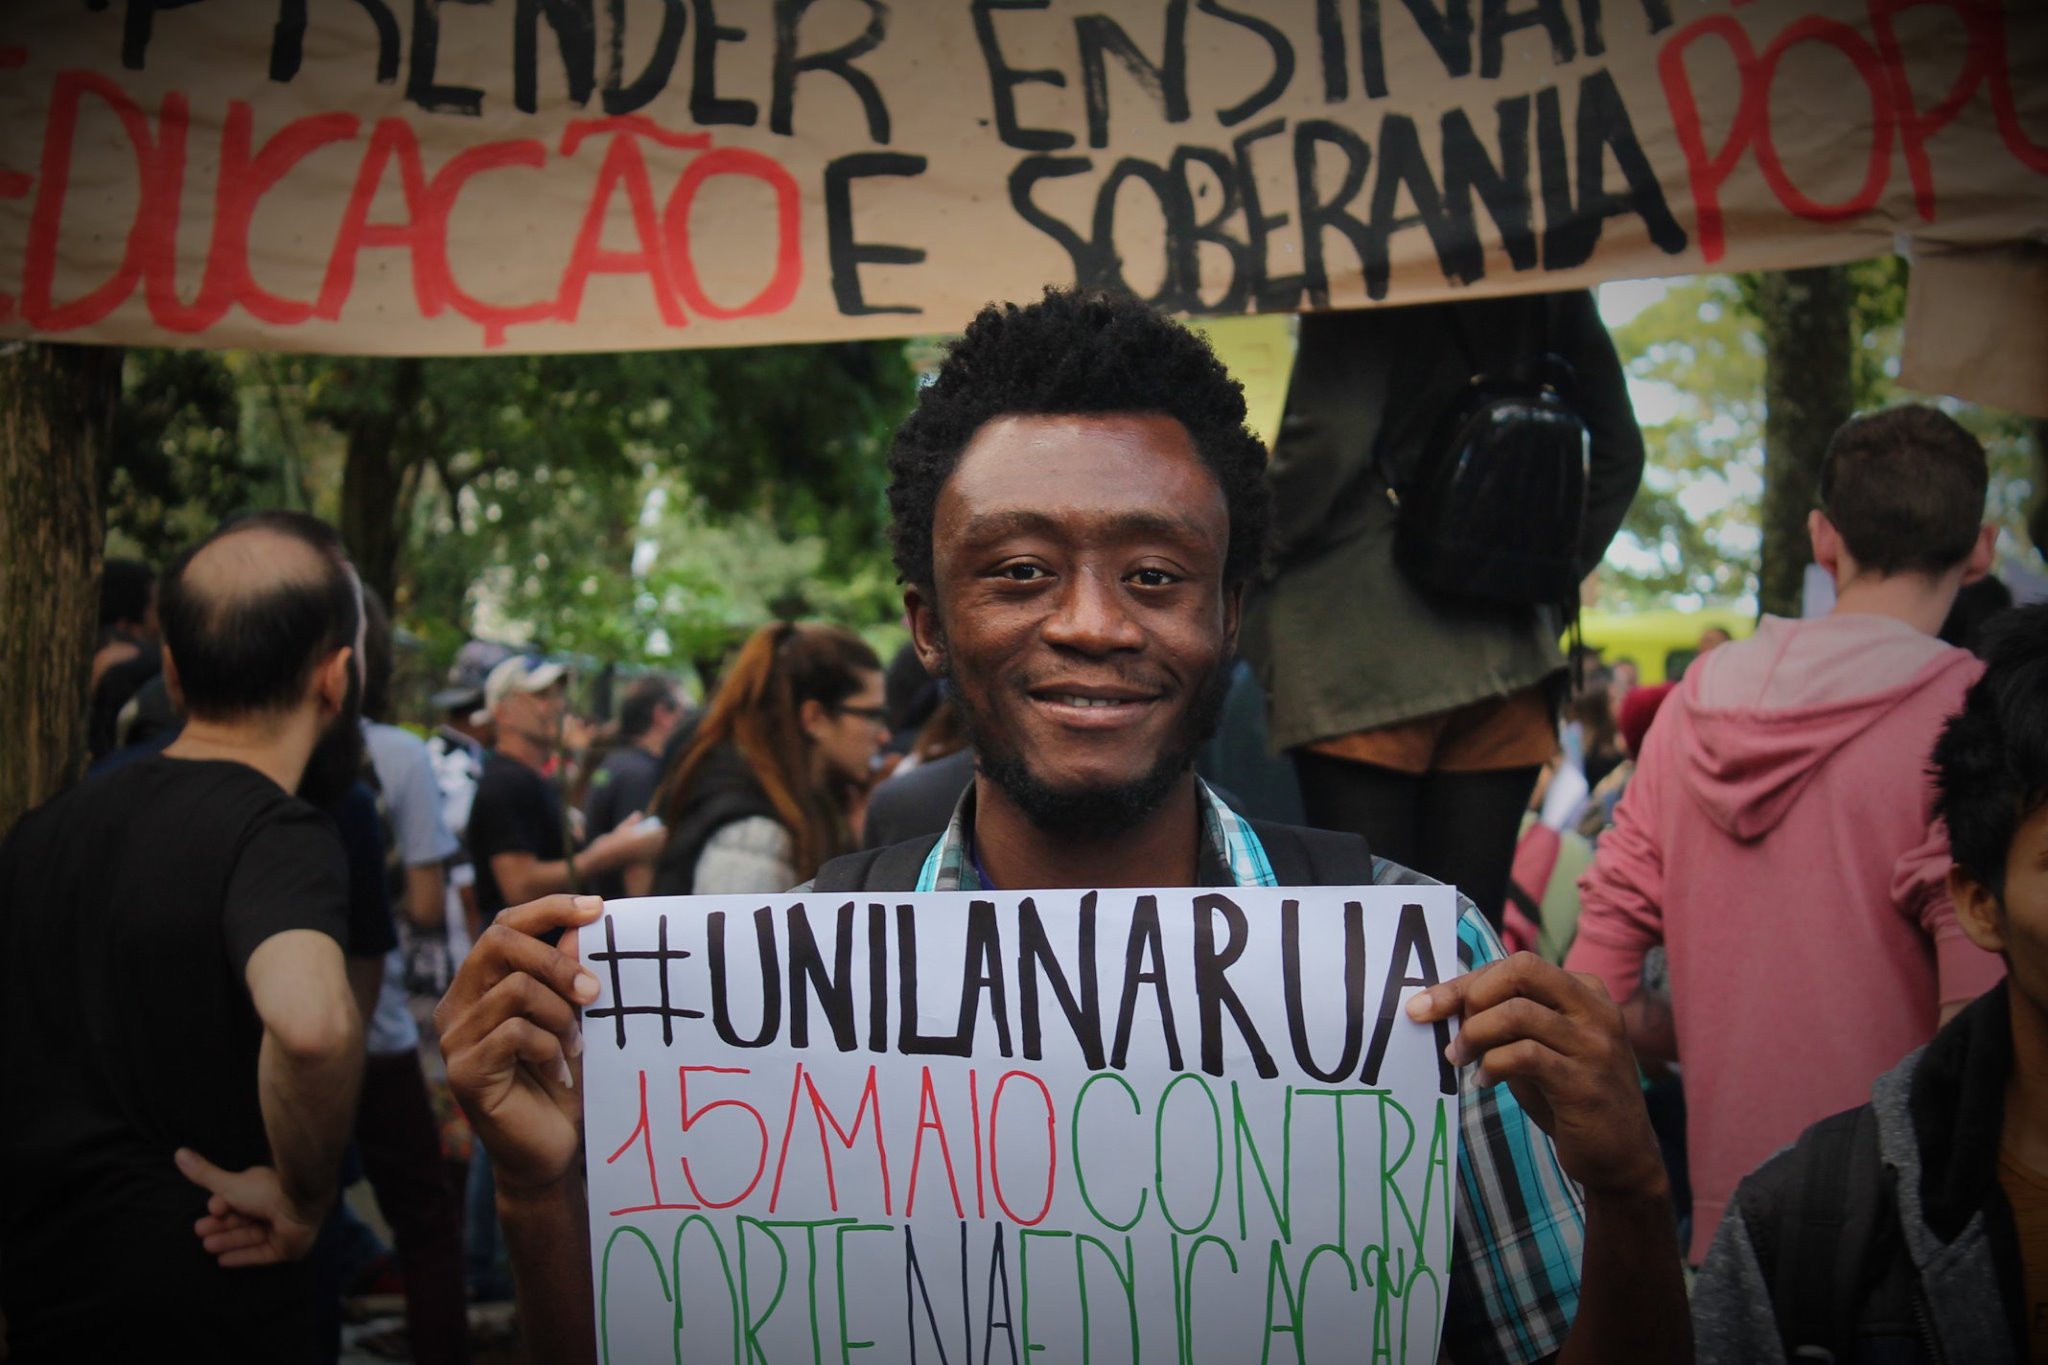 ENSINAR
EDUCAÇÃO E SOBERANIA
#UNILANARUA
15/MAIO CONTRA
CORTE NA EDUCAÇÃO